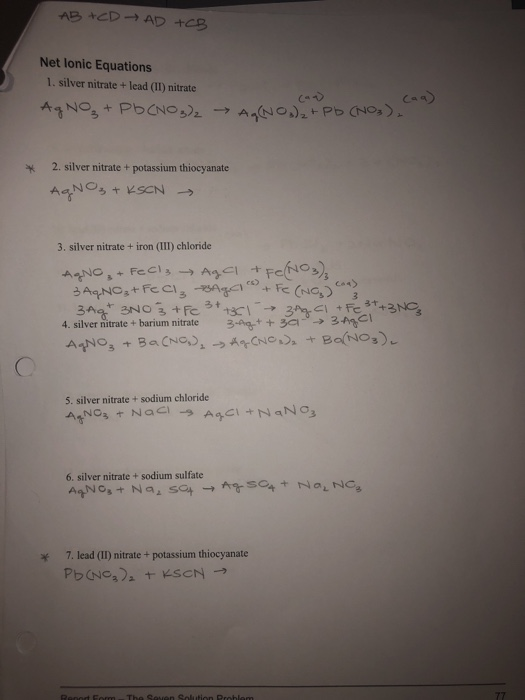 AB + CD → AD + CB
Net Ionic Equations
1. silver nitrate + lead (II) nitrate
(aq) (aq)
AgNO3 + Pb(NO3)2 → Ag(NO3)2 + Pb(NO3)2
* 2. silver nitrate + potassium thiocyanate
AgNO3 + KSCN →
3. silver nitrate + iron (III) chloride
AgNO3 + FeCl3 → AgCl + Fe(NO3)3
3AgNO3 + FeCl3 → 3AgCl (s) + Fe(NO3)3 (aq)
3Ag+ 3NO3- + Fe3+ + 3Cl- → 3AgCl + Fe3+ + 3NO3
4. silver nitrate + barium nitrate 3Ag+ + 3Cl- → 3AgCl
AgNO3 + Ba(NO3)2 → Ag(NO3)2 + Ba(NO3)2
5. silver nitrate + sodium chloride
AgNO3 + NaCl → AgCl + NaNO3
6. silver nitrate + sodium sulfate
AgNO3 + Na2 SO4 → AgSO4 + Na2 NO3
* 7. lead (II) nitrate + potassium thiocyanate
Pb(NO3)2 + KSCN →
Report Form – The Seven Solution Problem 77